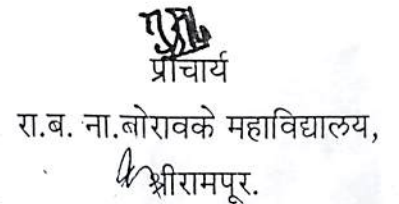 प्राचार्य
रा.ब. ना.बोरावके महाविद्यालय,
श्रीरामपूर.